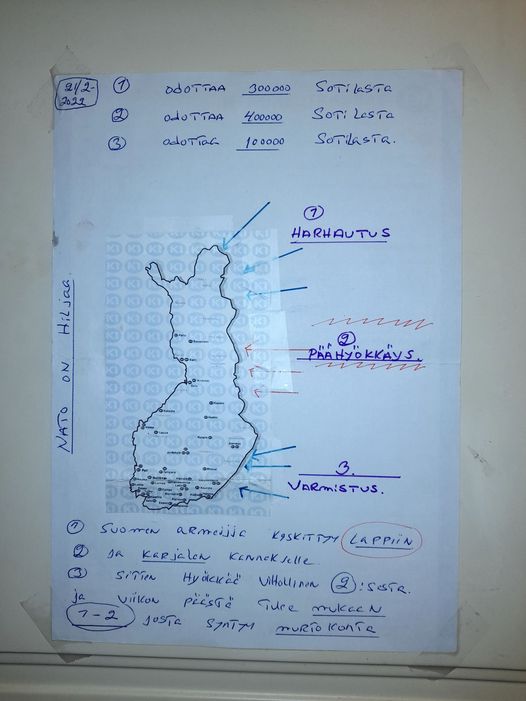 21/2-
2022
① ODOTTAA 300000 SOTILASTA
② ODOTTAA 400000 SOTILASTA
③ ODOTTAA 100000 SOTILASTA.
NATO ON HILJAA.
①
HARHAUTUS
②
PÄÄHYÖKKÄYS.
3.
VARMISTUS.
① SUOMEN ARMEIJJA KESKITTYY LAPPIIN
② JA KARJALAN KANNAKSELLE
③ SITTEN HYÖKKÄÄ VIHOLLINEN ②:SESTA.
JA VIIKON PÄÄSTÄ TULEE MUKAAN
1-2 JOSTA SYNTYY MURTOKOHTA